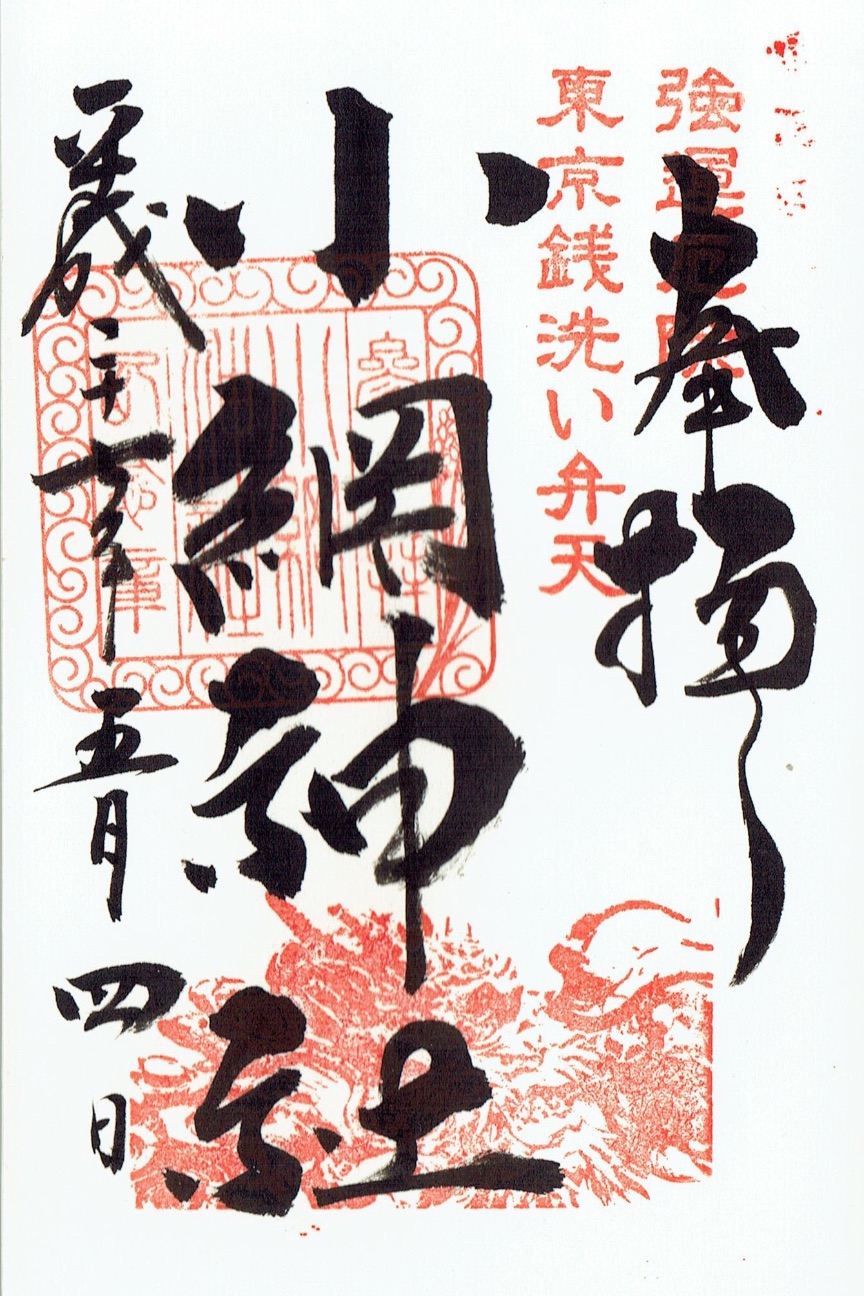 奉拝
強運厄除
東京銭洗い弁天
小網神社
平成二十七年五月四日